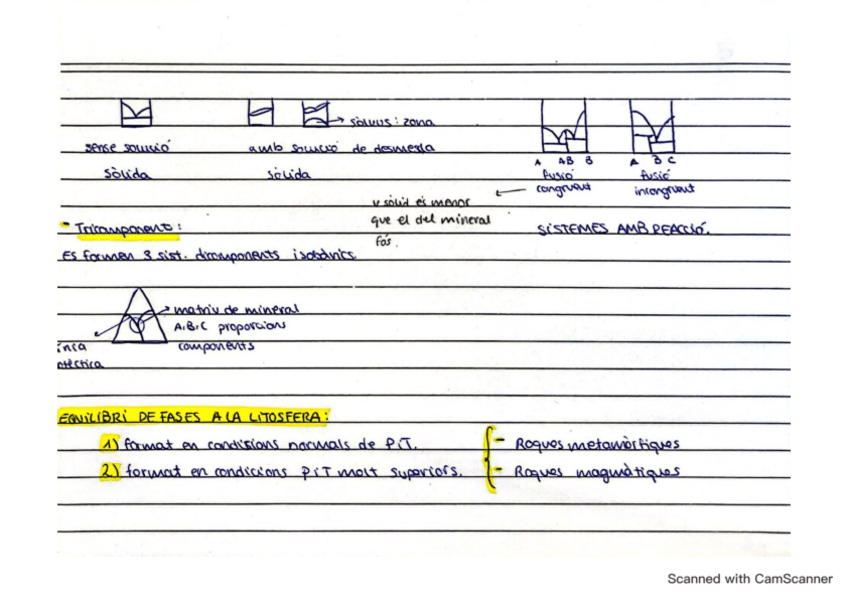 → sòlvus: zona
sense solució
sòlida
amb solució de desmescla
sòlida
A AB B
fusió
congruent
A B C
fusió
incongruent
v sòlid és menor
que el del mineral
fós.
SISTEMES AMB REACCIÓ.
- Tricomponents:
Es formen 3 sist. dicomponents isobàrics.
→ matriu de mineral
A,B,C proporcions
components
EQUILIBRI DE FASES A LA LITOSFERA:
1) format en condicions normals de P i T.
- Roques metamòrfiques
2) format en condicions P i T molt superiors.
- Roques magmàtiques
Scanned with CamScanner